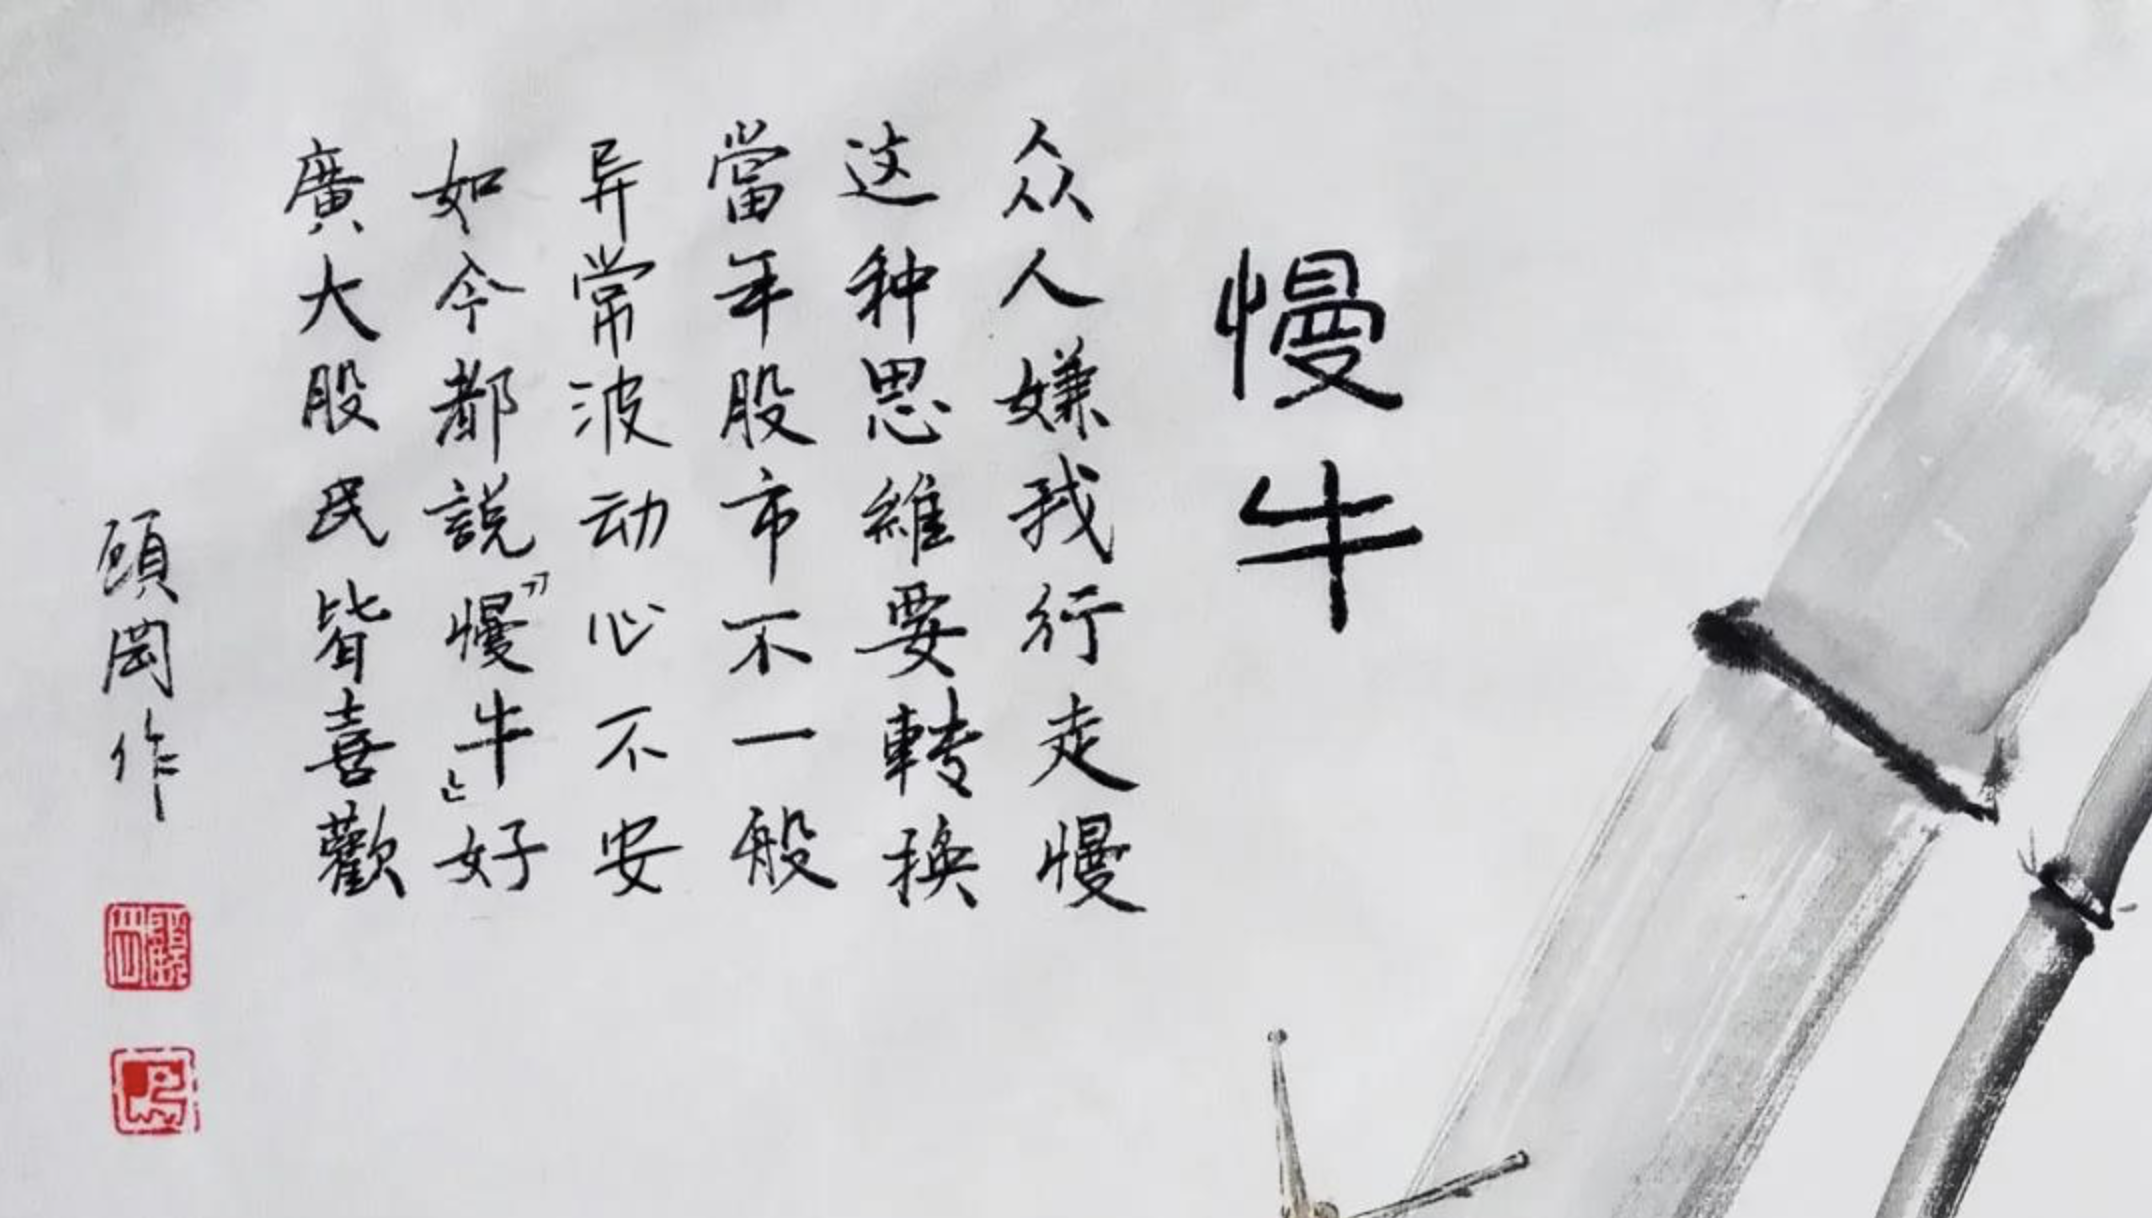 慢牛
众人嫌我行走慢
这种思維要转换
當年股市不一般
异常波动心不安
如今都説“慢牛”好
廣大股民皆喜歡
顾岡作